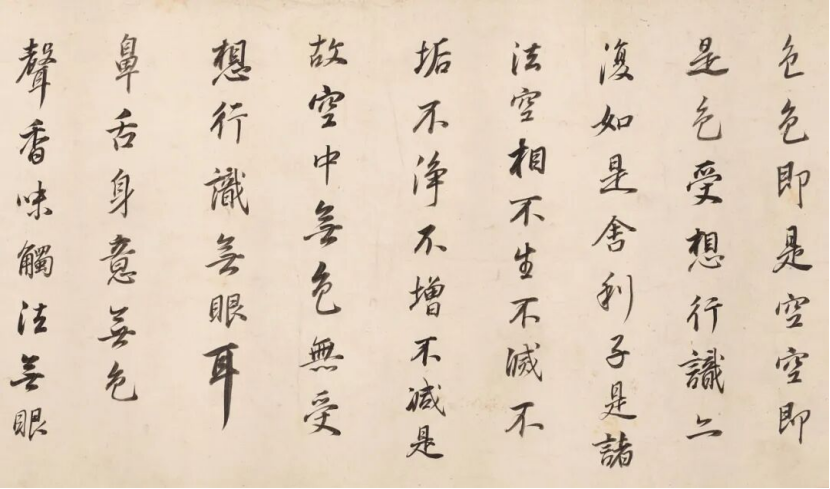 色色即是空空即
是色受想行識亦
復如是舍利子是諸
法空相不生不滅不
垢不淨不增不減是
故空中無色無受
想行識無眼耳
鼻舌身意無色
聲香味觸法無眼